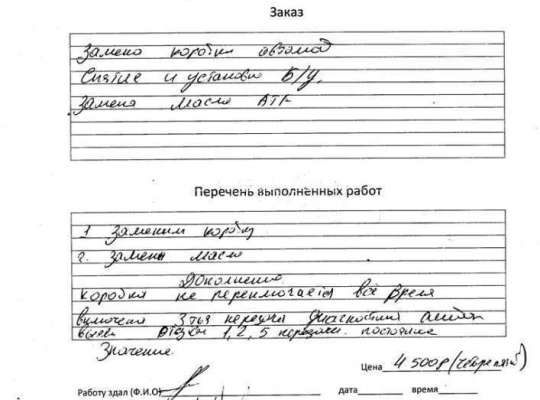 Заказ
Замена коробки автомод
Снятие и установка Б/у,
Замена Масло ATF
Перечень выполненных работ
1 Заменили коробку
2. Замены масло
Дополнение.
Коробка не переключается всё время
включена 3тья передача Диагностика
1, 2, 5 передачи.
Значение.
Цена 4 500р
Работу здал (Ф.И.О) дата время